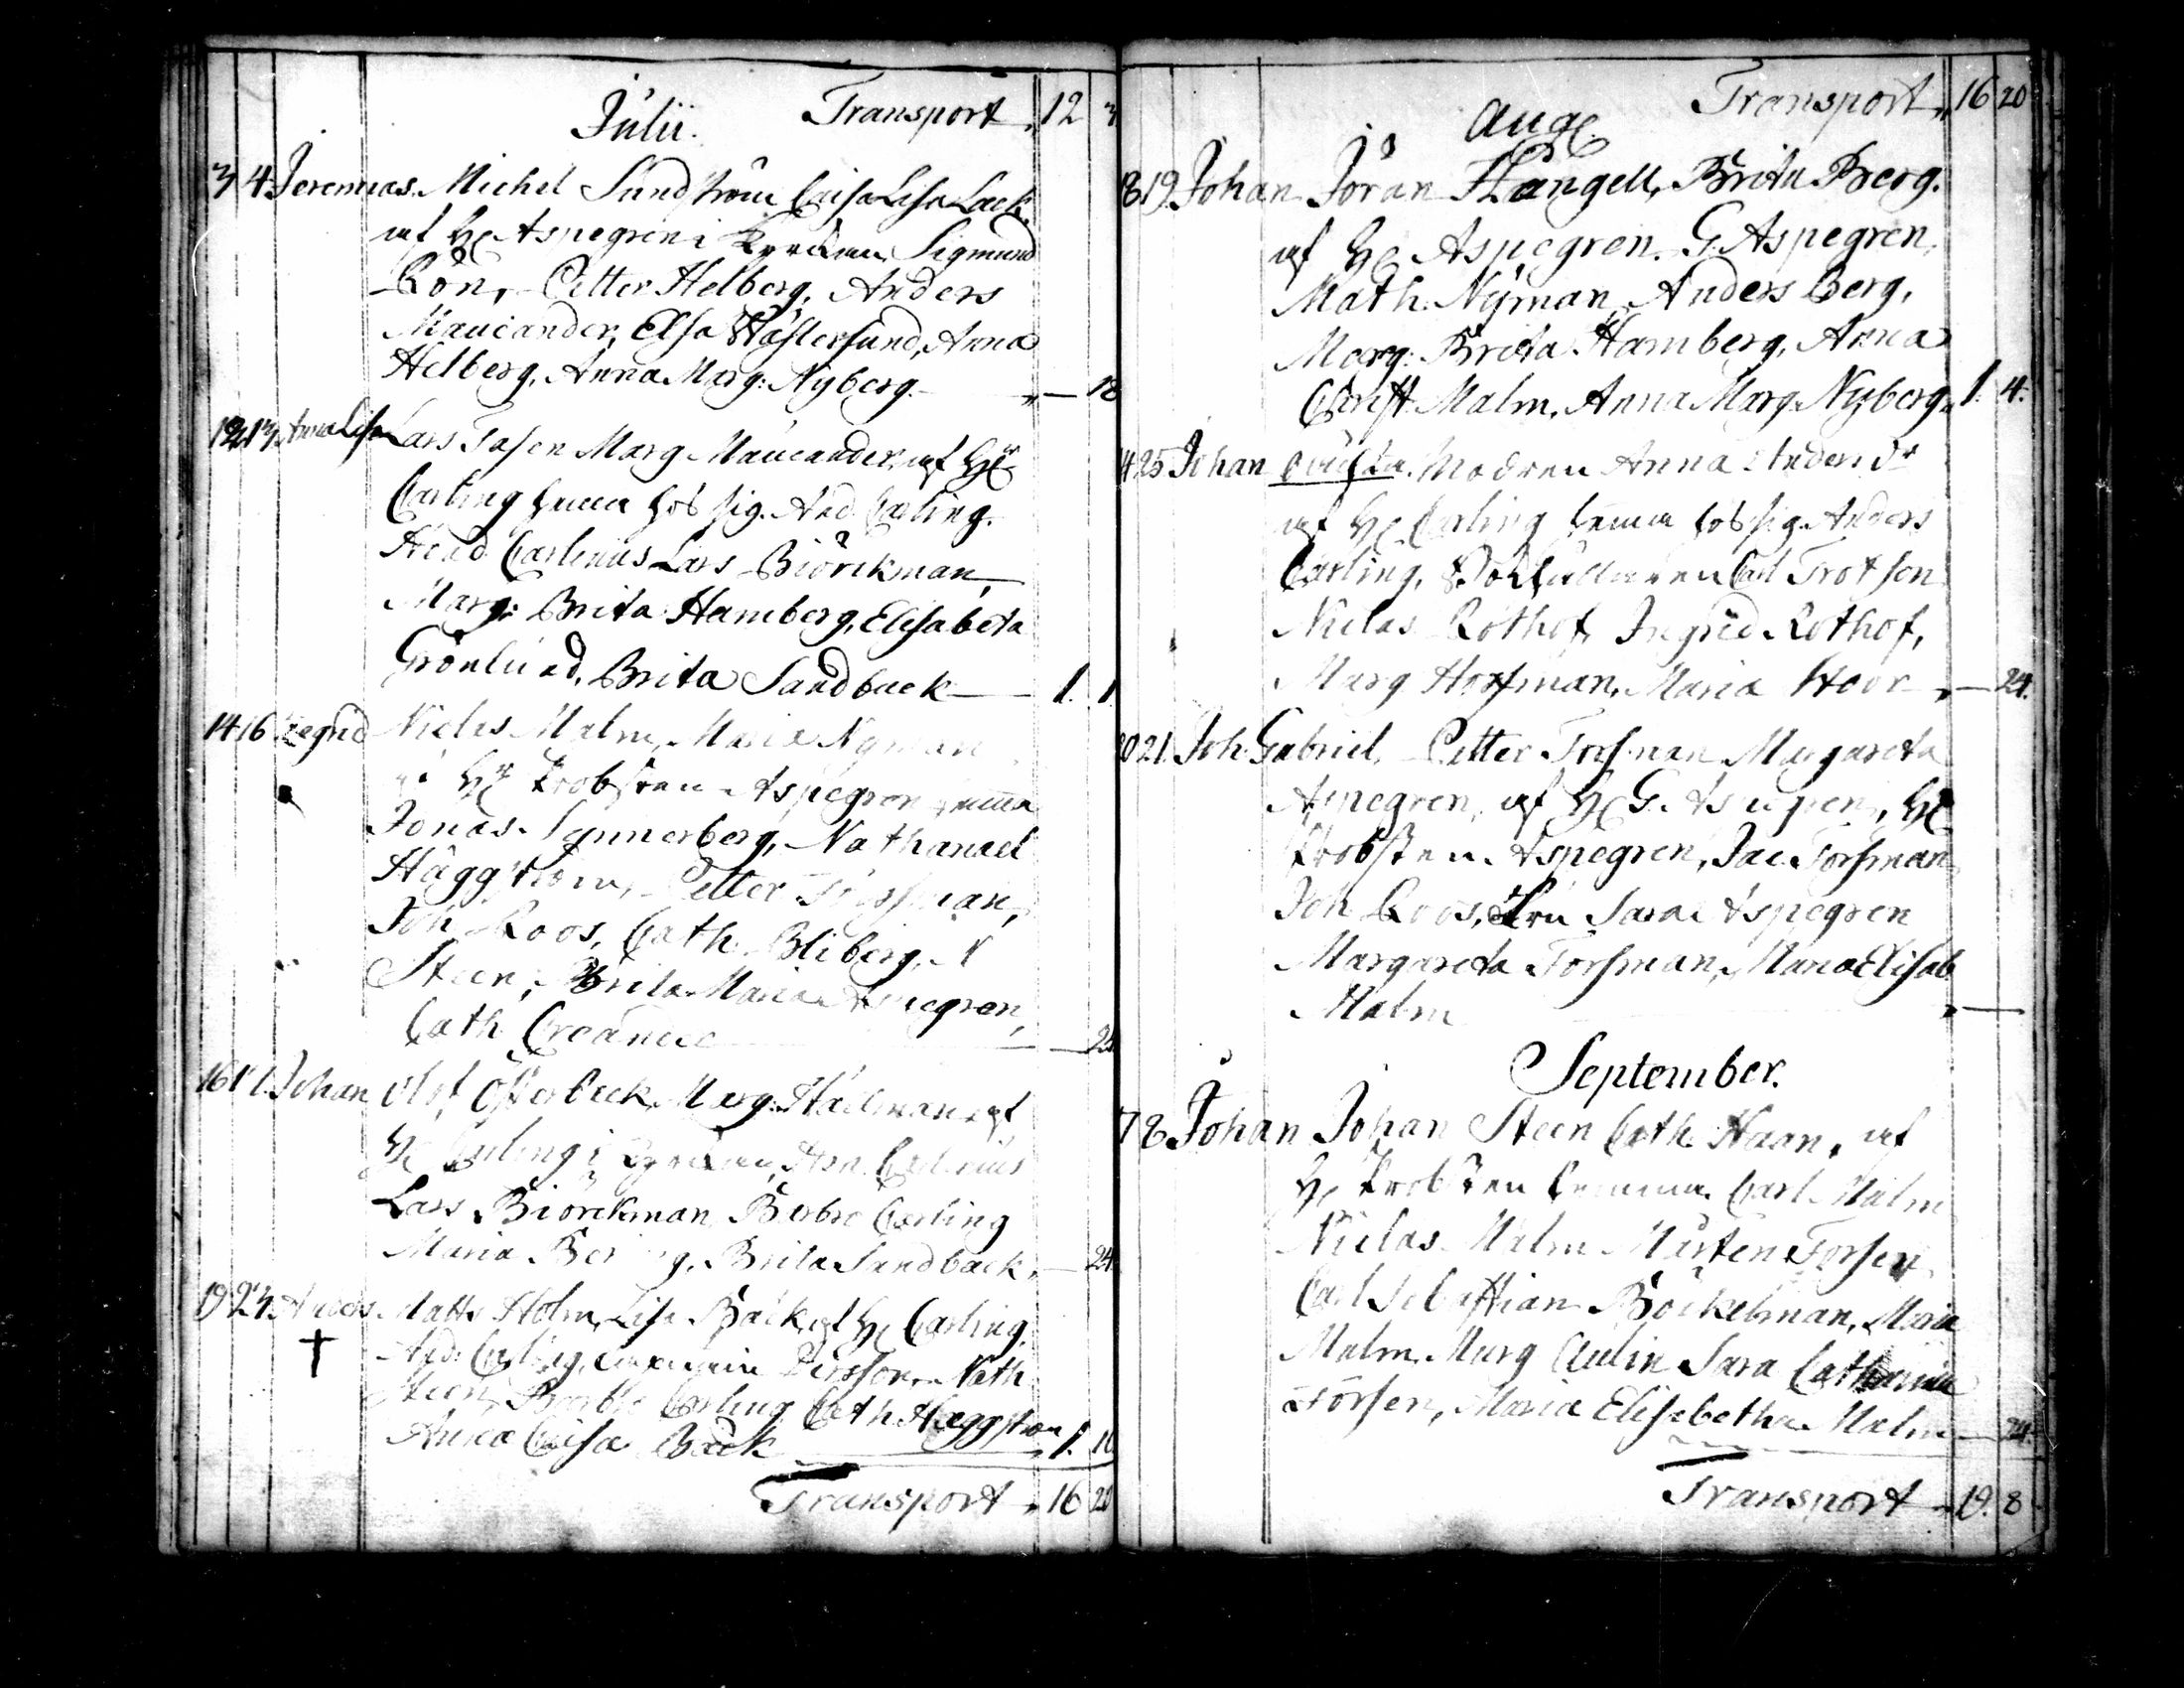 Julii. Transport 12
3 4 Jeremias. Michel Sundström Caisa Lisa Lack
af H Aspegren i Kyrckan Sigmund
Rön, Petter Helberg, Anders
Maucander, Elsa Wästersund, Anna
Helberg, Anna Marg: Nyberg. — 18
12 13 Anna Lisa Lars Marg Maucander, af Hr
Carling hema hos sig. And Carling.
Carlenius Lars Biörckman,
Marg: Brita Hamberg, Elisabeta
Grönlund, Brita Sandback — 1. 1
14 16 Ingrid Niclas Malm, Maria Nyman
Hr Probsten Aspegren hema
Jonas Synnerberg, Nathanael
Häggström, Petter Forssman,
Joh Roos, Cath. Bliberg,
Steen, Brita Maria Aspegren,
Cath Creander — 24
16 17. Johan Olof Österbeck, Marg: af
H Carling i Kyrckan, Carlenius
Lars Biörckman Barbro Carling
Maria Brita Sandback, — 24
19 23. Anders Matts Holm, Lisa Bäck, af H Carling,
And: Carling, Persson, Nath
Steen, Barbro Carling Cath Häggström
Anna Caisa Bäck 1. 16
Transport 16 20
Transport 16 20
Aug.
18 19. Johan Jöran Hangell, Brita Berg.
af H Aspegren. G. Aspegren,
Math. Nyman, Anders Berg,
Marg: Brita Hamberg, Anna
Christ. Malm, Anna Marg. Nyberg, 1. 4.
25 Johan oäckta. Modren Anna Anders dr
af H Carling hema hos sig Anders
Carling, Carl Trotsen
Niclas Rothof, Ingrid Rothof,
Marg Horfman, Maria Hoor — 24.
20 21. Joh. Gabriel, Petter Forsman Margareta
Aspegren, af H G. Aspegren, H
Probsten Aspegren, Jac. Forsman
Joh Roos, Fru Sara Aspegren
Margareta Forsman, Maria Elisab
Malm —
September.
7 8 Johan Johan Steen Cath. Haan, af
H Probsten hemma. Carl Malm
Niclas Malm Mårten Forsen
Carl Sebastian Böckelman, Maria
Malm, Marg Aulin Sara Catharina
Forsen, Maria Elisabetha Malm — 24.
Transport 19. 8